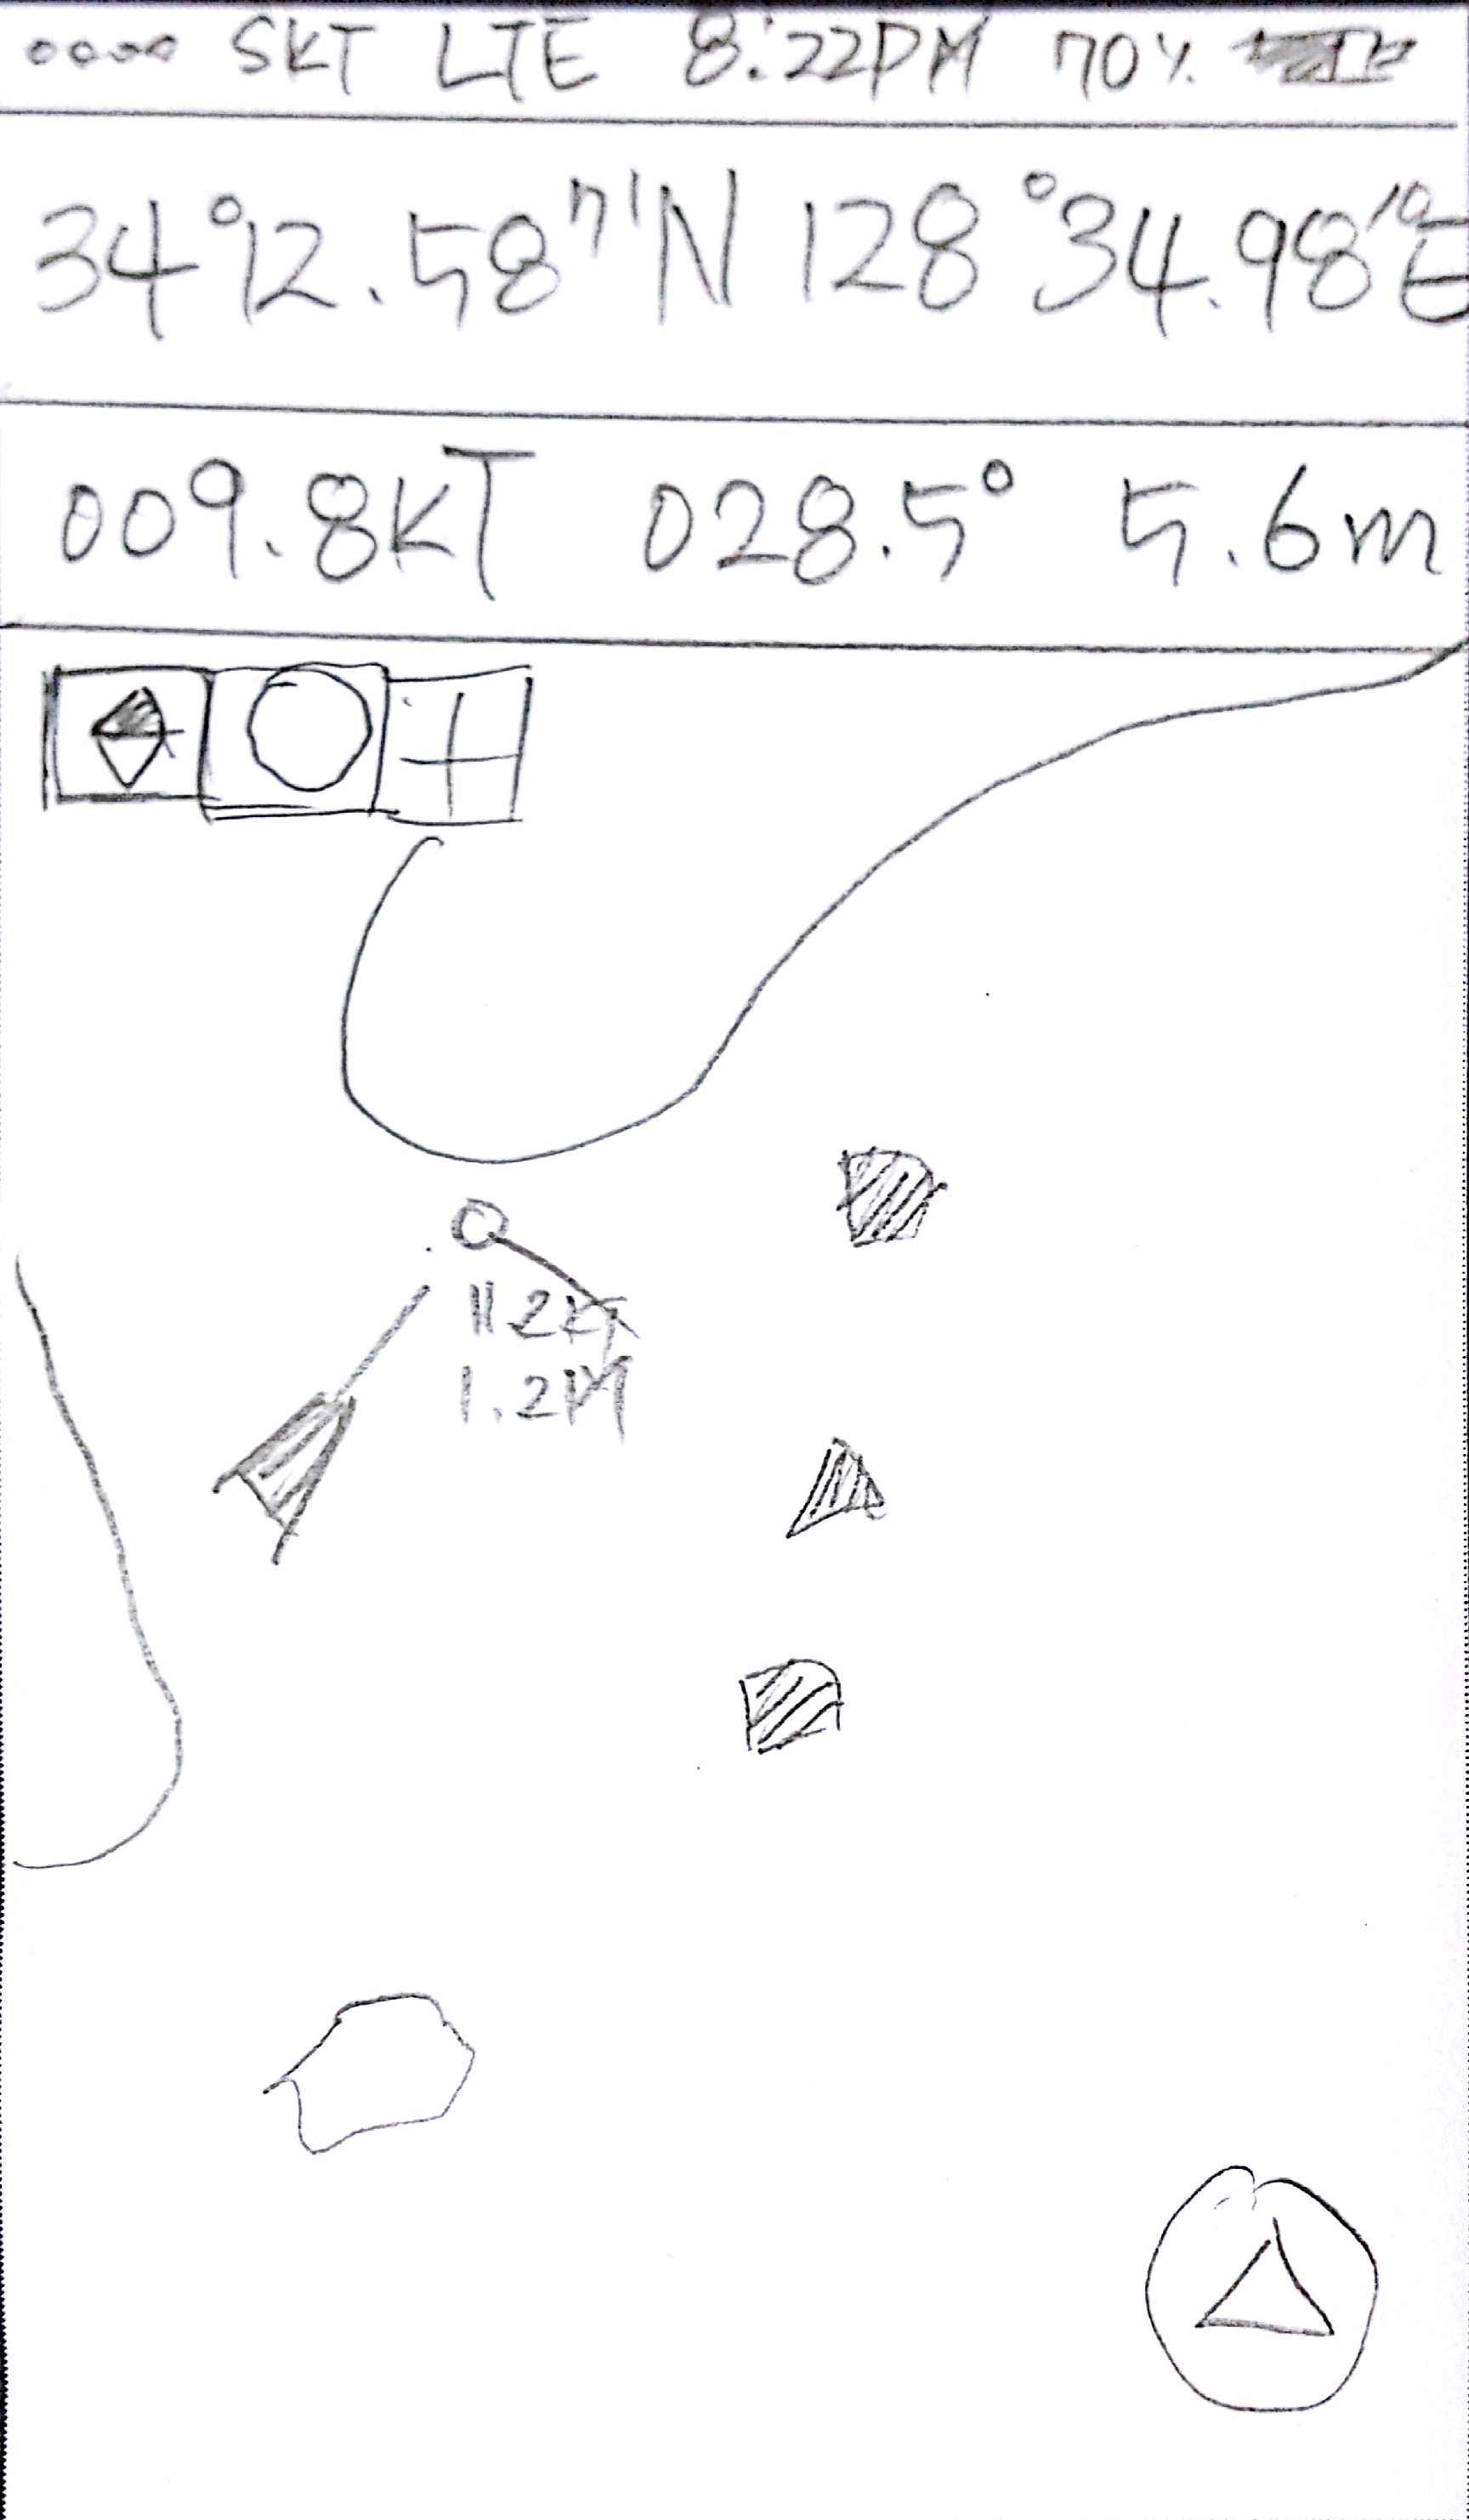 SKT LTE 8:22PM 70%
34°12.58'71'N 128°34.98'10E
009.8KT 028.5° 5.6m
11.2KT
1.2M